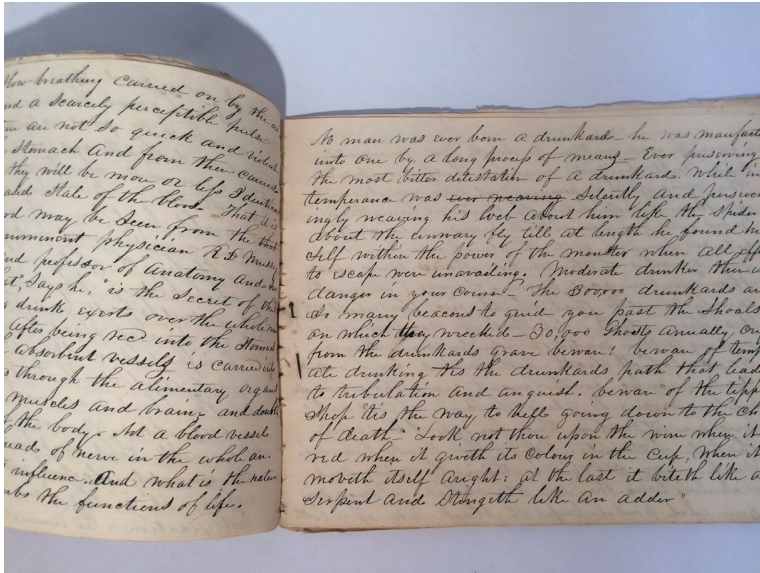 how breathing carried on by the
and a scarcely perceptible pulse
are not so quick and
stomach And from then carried
they will be more or less Identical
and State of the blood. That it is
may be Seen from the
imminent physician R D Mussey
and professor of Anatomy and
Says he "is the Secret of the
drink exerts over the whole
After being recd into the Stomach
absorbent vessels is carried into
through the alimentary organs
Muscles and brain and
the body. Not a blood vessel
of nerve in the whole an
influence. And what is the
the functions of life.
No man was ever born a drunkard- he was manufact
into one by a long process of means- Ever preserving
the most bitter detestation of a drunkards. While in
temperance was ever weaving Silently And persever
ingly weaving his web about him like the Spider
about the unwary fly till at length he found him
Self within the power of the monster when all effo
to escape were unavailing. Moderate drinker then is
danger in your course- The 300,000 drunkards are
So many beacons to guid you past the Shoals
on which they wrecked- 30,000 Ghosts Anually cry
from the drunkards grave beware! beware of temper
ate drinking tis the drunkards path that leads
to tribulation and anguish. beware of the tipp
Shop 'tis the way to hell going down to the Ch
of death "Look not thou upon the wine when it
red when it giveth its colour in the Cup, when it
moveth itself aright: at the last it biteth like a
Serpent and Stingeth like An adder"